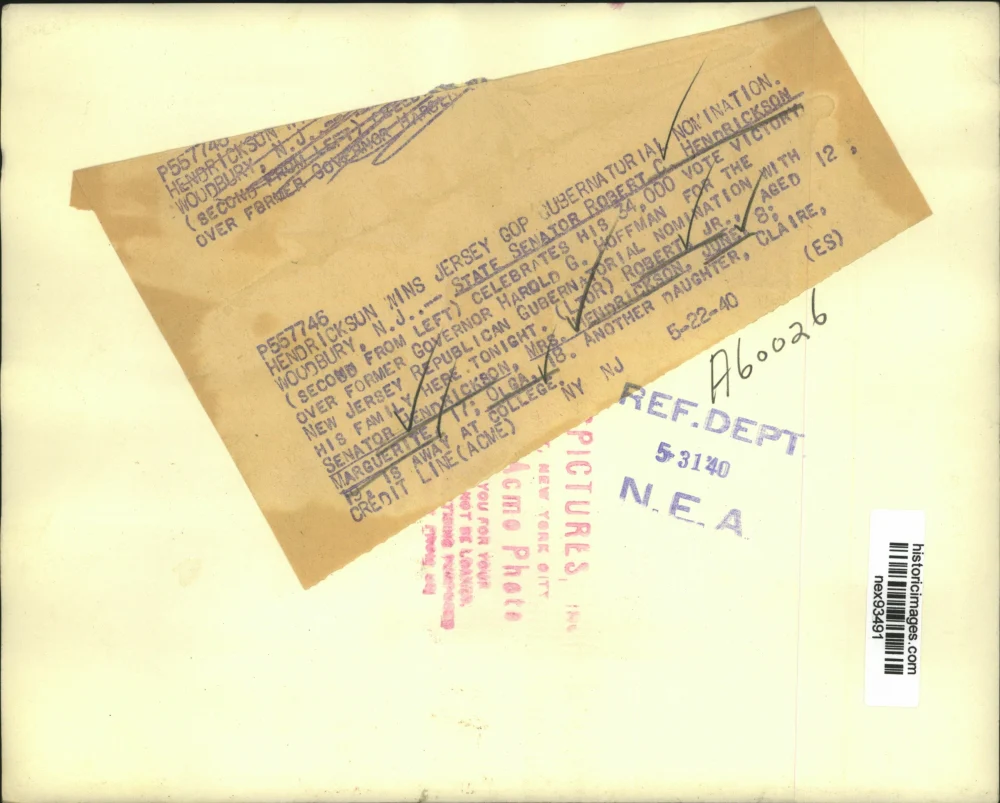 P557746
HENDRICKSON
WOODBURY, N.J..
(SECOND FROM LEFT)
OVER FORMER GOVERNOR HAROLD
P557746
HENDRICKSON WINS JERSEY GOP GUBERNATURIAL NOMINATION.
WOODBURY, N.J..-- STATE SENATOR ROBERT C. HENDRICKSON
(SECOND FROM LEFT) CELEBRATES HIS 34,000 VOTE VICTORY
OVER FORMER GOVERNOR HAROLD G. HOFFMAN FOR THE
NEW JERSEY REPUBLICAN GUBERNATORIAL NOMINATION WITH
HIS FAMILY HERE TONIGHT. (LTOR) ROBERT JR., AGED 12;
SENATOR HENDRICKSON, MRS. HENDRICKSON, JUNE, 8;
MARGUERITE, 17; OLGA, 18. ANOTHER DAUGHTER, CLAIRE,
19, IS AWAY AT COLLEGE.
CREDIT LINE(ACME) NY NJ 5-22-40 (ES)
A60026
REF. DEPT
5-31'40
N. E. A.
PICTURES, INC
NEW YORK CITY
Acme Photo
YOU FOR YOUR
NOT BE LOANED,
historicimages.com
nex93491